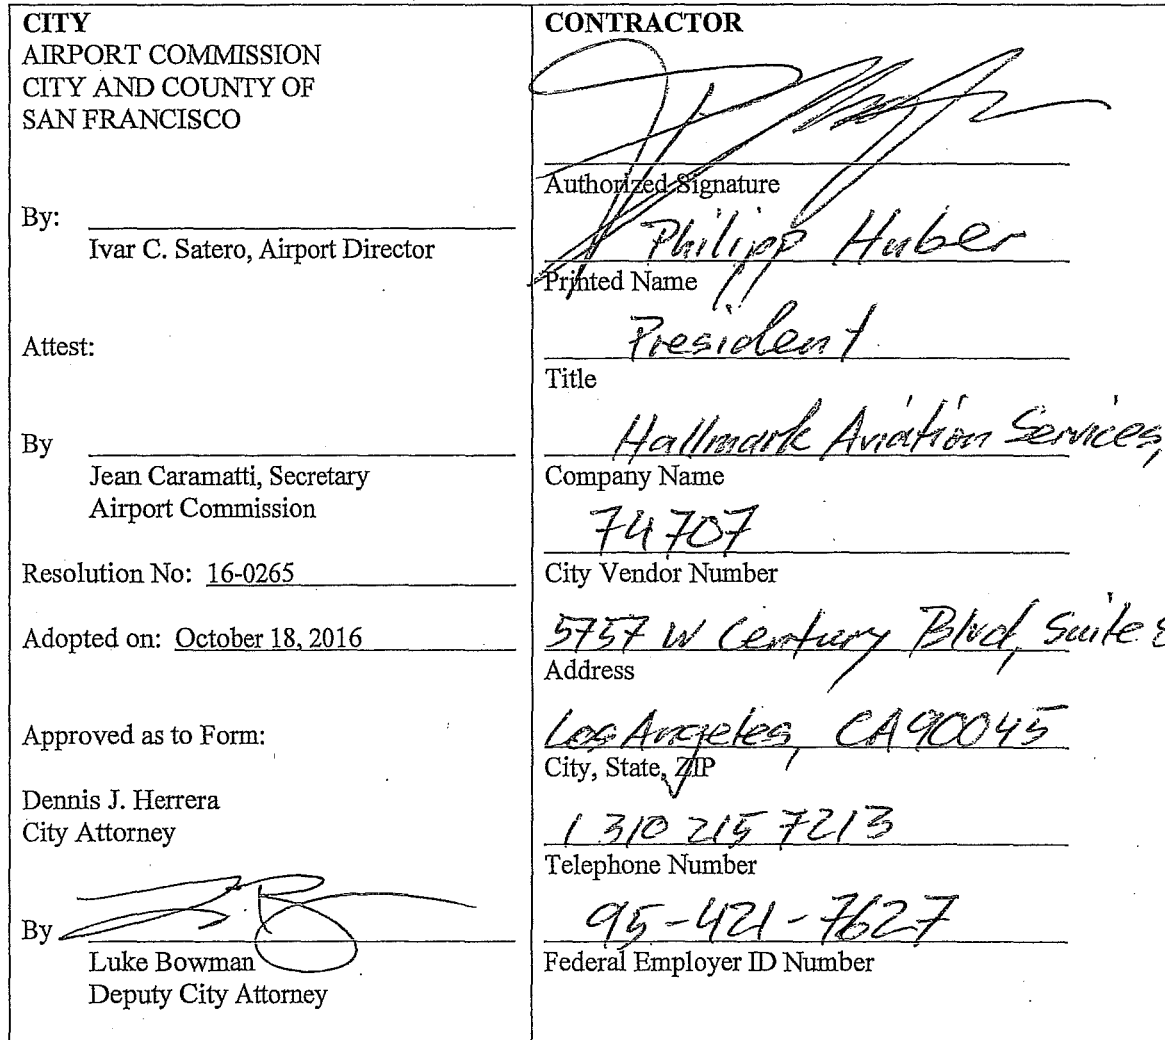 CITY
AIRPORT COMMISSION
CITY AND COUNTY OF
SAN FRANCISCO
By:
Ivar C. Satero, Airport Director
Attest:
By
Jean Caramatti, Secretary
Airport Commission
Resolution No: 16-0265
Adopted on: October 18, 2016
Approved as to Form:
Dennis J. Herrera
City Attorney
By
Luke Bowman
Deputy City Attorney
CONTRACTOR
Authorized Signature
Philipp Huber
Printed Name
President
Title
Hallmark Aviation Services,
Company Name
74707
City Vendor Number
5757 W Century Blvd, Suite
Address
Los Angeles, CA 90045
City, State, ZIP
1 310 215 7213
Telephone Number
95-421-7627
Federal Employer ID Number